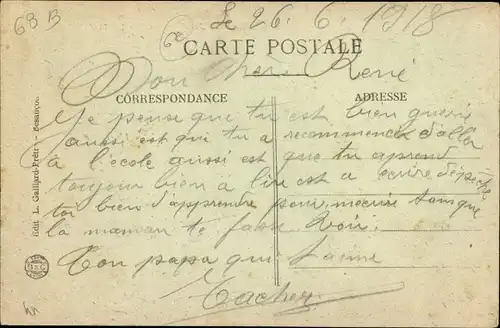 68 B
Le 26. 6. 1918
6e
CARTE POSTALE
Mon cher René
CORRESPONDANCE
ADRESSE
Je pense que tu est bien guerie
aussi est que tu a recommencé d'aller
à l'école aussi est que tu aprend
toujour bien a lire est a ecrire dépêche
toi bien d'apprendre pour mecrire
la maman te fasse Voir.
Ton papa qui t'aime
Edit L. Gaillard-Prêtre - Besançon